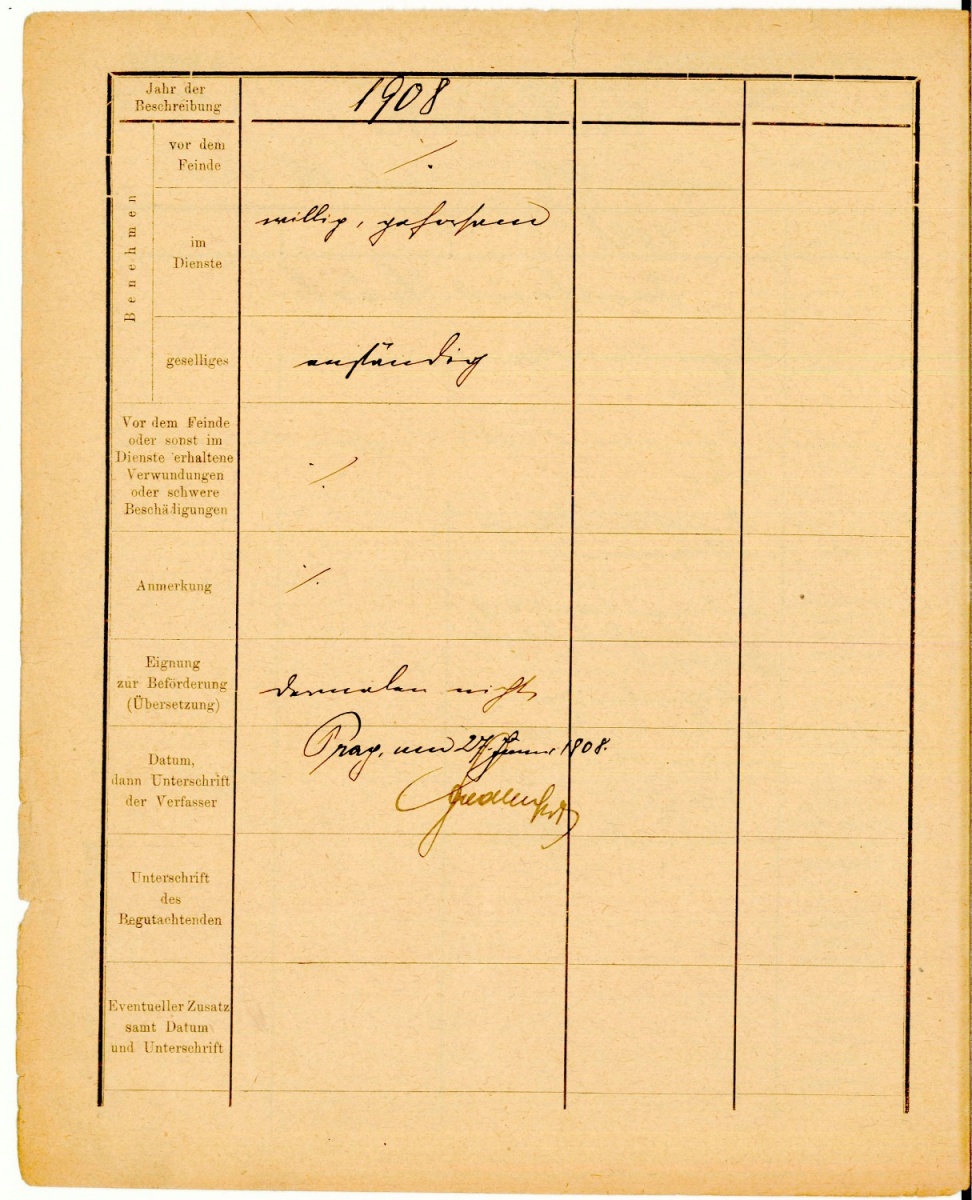 Jahr der
Beschreibung
1908
Benehmen
vor dem
Feinde
./.
im
Dienste
willig, gehorsam
geselliges
anständig
Vor dem Feinde
oder sonst im
Dienste erhaltene
Verwundungen
oder schwere
Beschädigungen
./.
Anmerkung
./.
Eignung
zur Beförderung
(Übersetzung)
dermalen nicht
Datum,
dann Unterschrift
der Verfasser
Prag, am 27. 1908.
Unterschrift
des
Begutachtenden
Eventueller Zusatz
samt Datum
und Unterschrift